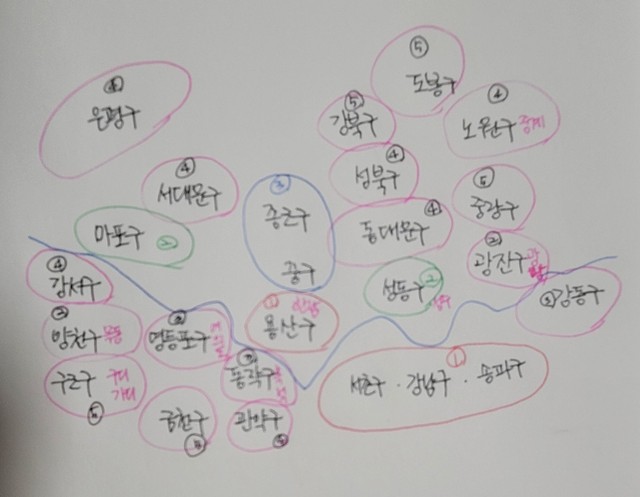 ⑤
도봉구
은평구
⑤
강북구
④
노원구 중계
④
서대문구
④
성북구
③
종로구
중구
⑤
중랑구
마포구 ②
④
동대문구
②
광진구 광장
④
강서구
성동구 ②
성수
강동구
①
용산구
양천구 목동
영등포구
①
서초구 · 강남구 · 송파구
구로구
동작구
금천구
관악구